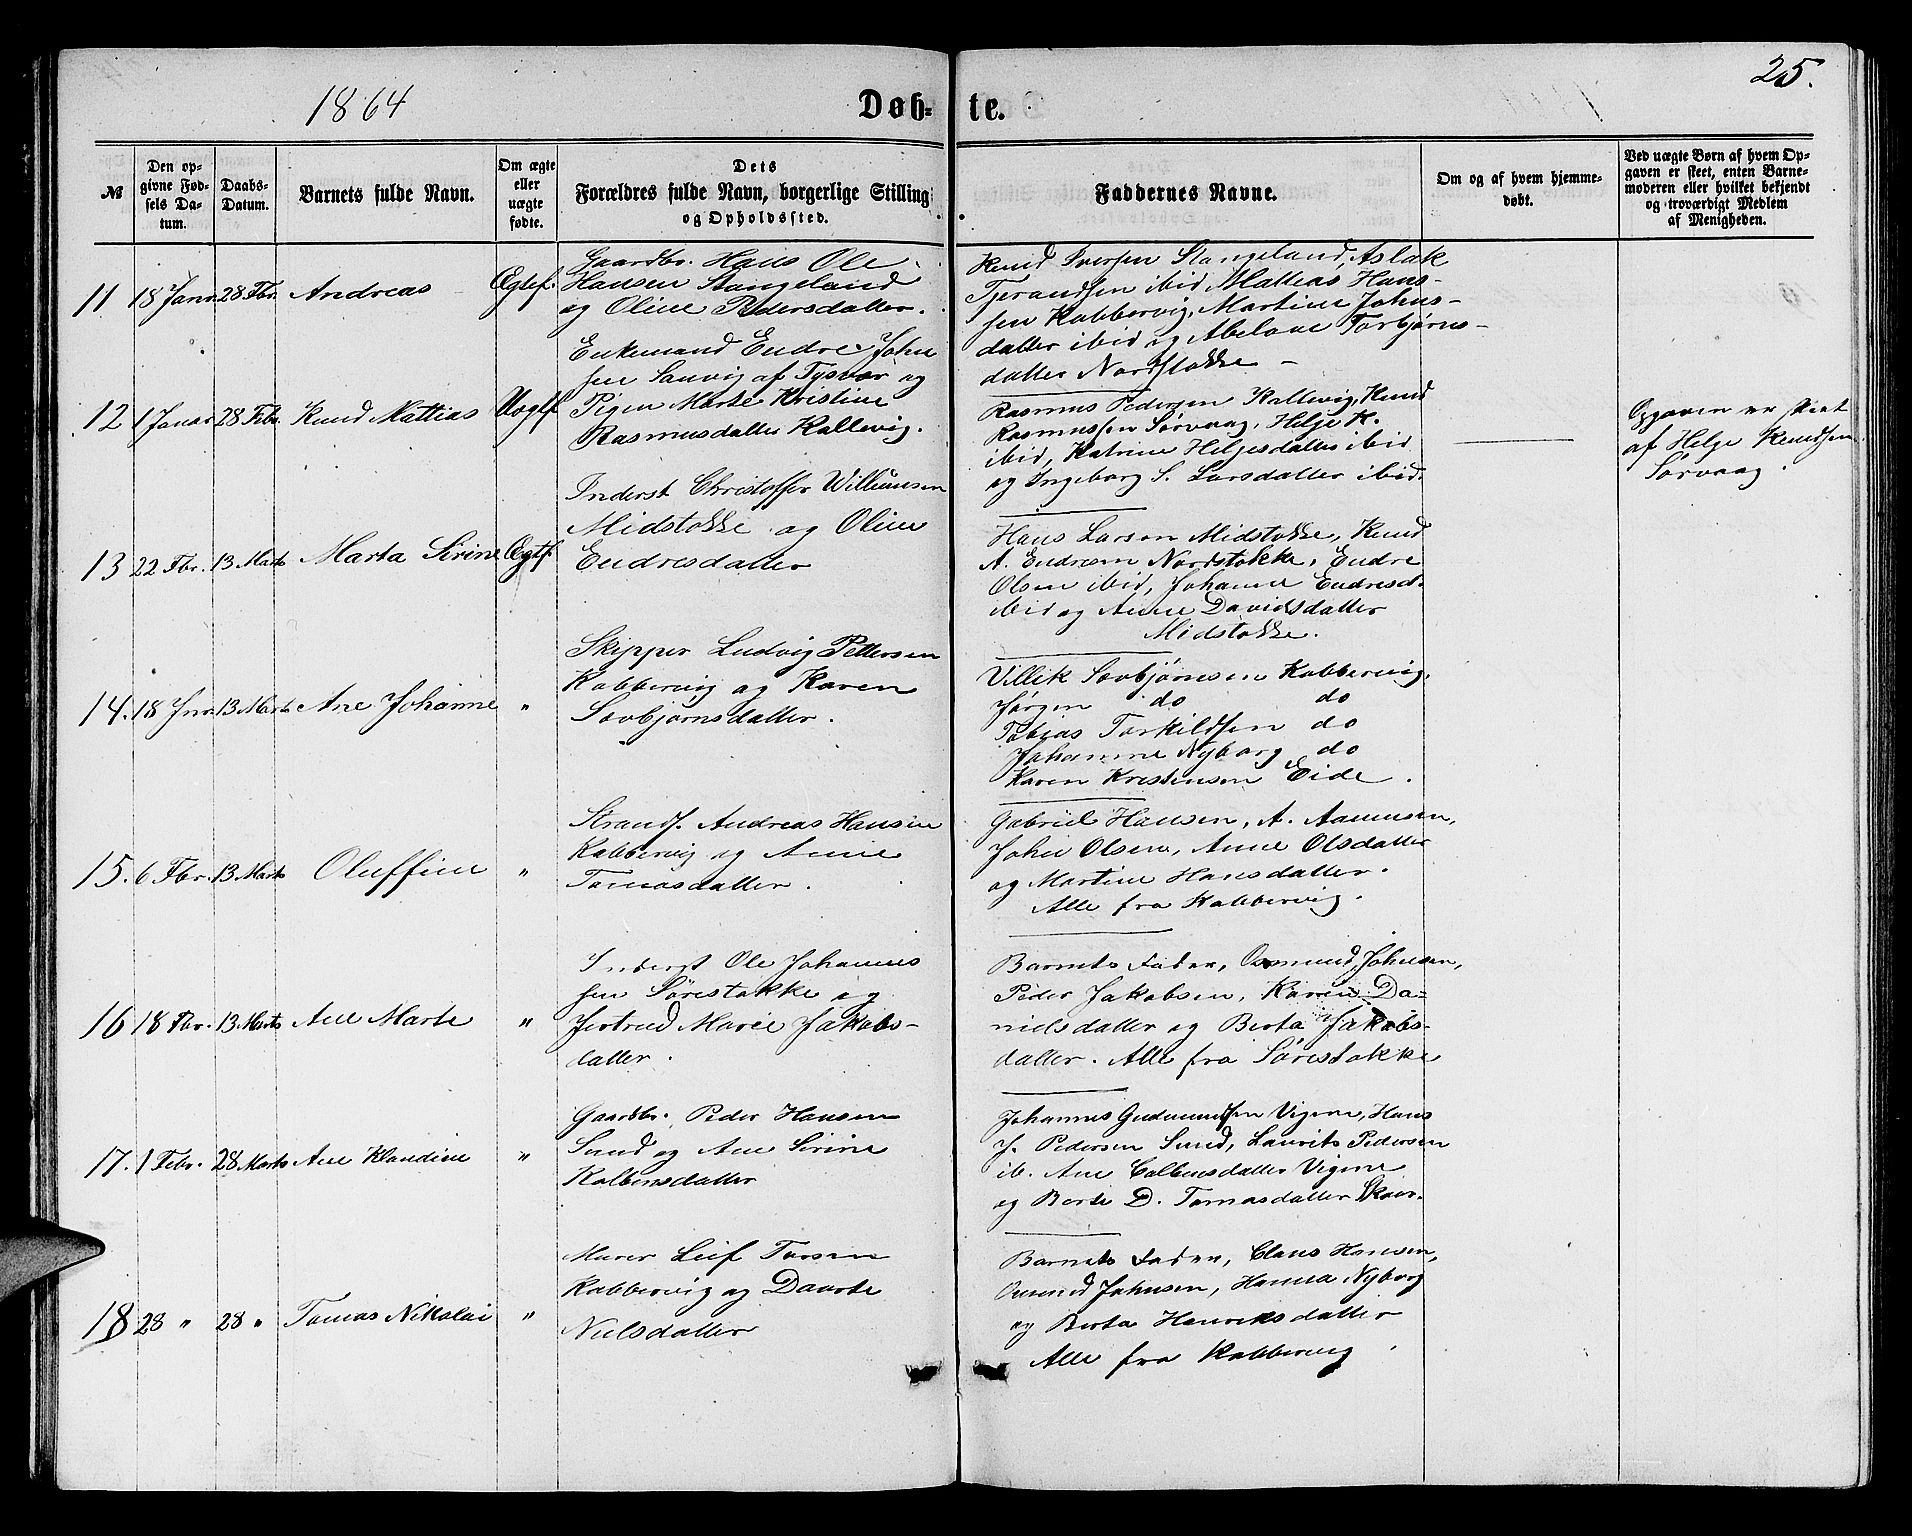 1864
Døb-
te.
25.
№
Den op-
givne Fød-
sels Da-
tum.
Daabs-
Datum.
Barnets fulde Navn.
Om ægte
eller
uægte
fødte.
Dets
Forældres fulde Navn, borgerlige Stilling
og Opholdssted.
Faddernes Navne.
Om og af hvem hjemme-
døbt.
Ved uægte Børn af hvem Op-
gaven er skeet, enten Barne-
moderen eller hvilket bekjendt
og troværdigt Medlem
af Menigheden.
11 18 Janr. 28 Fbr. Andreas Ægtef.
Gaardbr. Hans Ole
Hansen Stangeland
og Oline Pedersdatter.
Knud Iversen Stangeland, Aslak
Tjerandsen ibid Mattias Hans-
sen Kobbervig, Martine Johns-
datter ibid og Abelone Torbjørns-
datter Nordstokke
12 1 Januar 28 Febr. Knud Mattias Uægtf
Enkemand Endre John
sen Sanvig af Tysvær og
Pigen Marte Kristine
Rasmusdatter Kallevig.
Rasmus Pedersen Kallevig, Knud
Rasmussen Sørvaag, Helge K.
ibid, Katrine Helgesdatter ibid
og Ingeborg S. Larsdatter ibid.
Opgaven er skeet
af Helge Knudsen
Sørvaag.
13 22 Fbr. 13 Marts Marta Sirine Ægtf.
Inderst Christoffer Willumsen
Midstokke og Oline
Endresdatter
Hans Larsen Midstokke, Knud
A. Endresen Nordstokke, Endre
Olsen ibid, Johanne Endresd.
ibid og Anne Davidsdatter
Midstokke.
14. 18 Jnr. 13 Marts Ane Johanne "
Skipper Ludvig Pettersen
Kobbervig og Karen
Sovbjørnsdatter.
Villik Sovbjørnsen Kobbervig.
Jørgen do do
Tobias Torkildsen do
Johanne Nyborg do
Karen Kristensen Eide.
15. 6 Fbr. 13 Marts Oluffine "
Strands. Andreas Hansen
Kobbervig og Anne
Tomasdatter.
Gabriel Hansen, A. Aamunsen,
John Olsen, Anne Olsdatter
og Martine Hansdatter.
Alle fra Kobbervig.
16 18 Fbr. 13 Marts Ane Marte "
Inderst Ole Johannes
sen Sørestokke og
Jertrud Marie Jakobs-
datter.
Barnets Fader, Osmund Johnsen,
Peder Jakobsen, Karen Da-
nielsdatter og Berta Jakobs-
datter. Alle fra Sørestokke
17. 1 Febr. 28 Marts Ane Klaudine "
Gaardbr. Peder Hansen
Sund og Ane Sirine
Kolbensdatter
Johannes Gudmundsen Vigene, Hans
J. Pedersen Sund, Laurits Pedersen
ib. Ane Colbensdatter Vigene
og Berte D. Tomasdatter Skaar.
18 28 " 28 " Tomas Nikolai "
Murer Leif Torsen
Kobbervig og Daarte
Nielsdatter
Barnets Fader, Claus Hansen,
Osmund Johnsen, Hanna Nyborg
og Berta Henriksdatter
Alle fra Kobbervig.